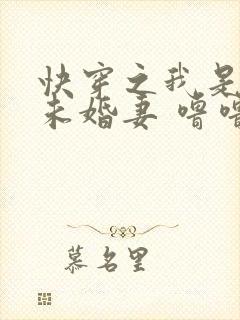 快穿之我是
未婚妻 嘚嘚
慕名里